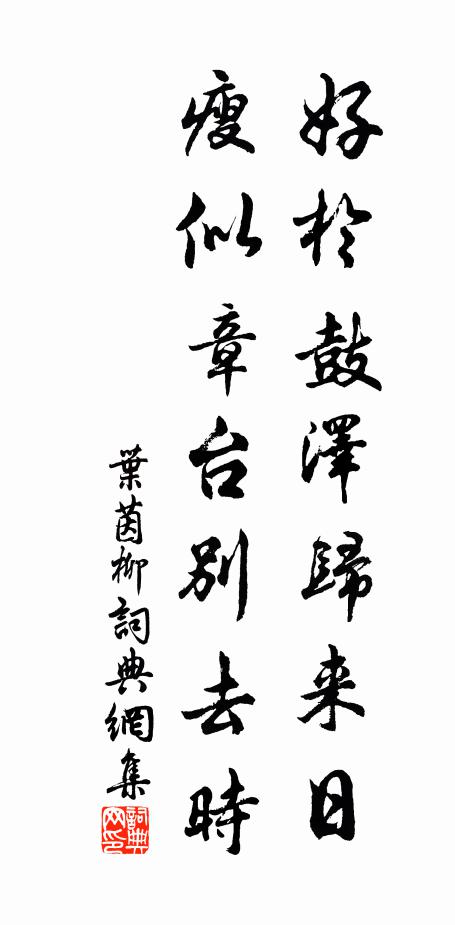 好於鼓澤歸来日
瘦似章台別去時
葉茵柳詞典網集
詞典网印